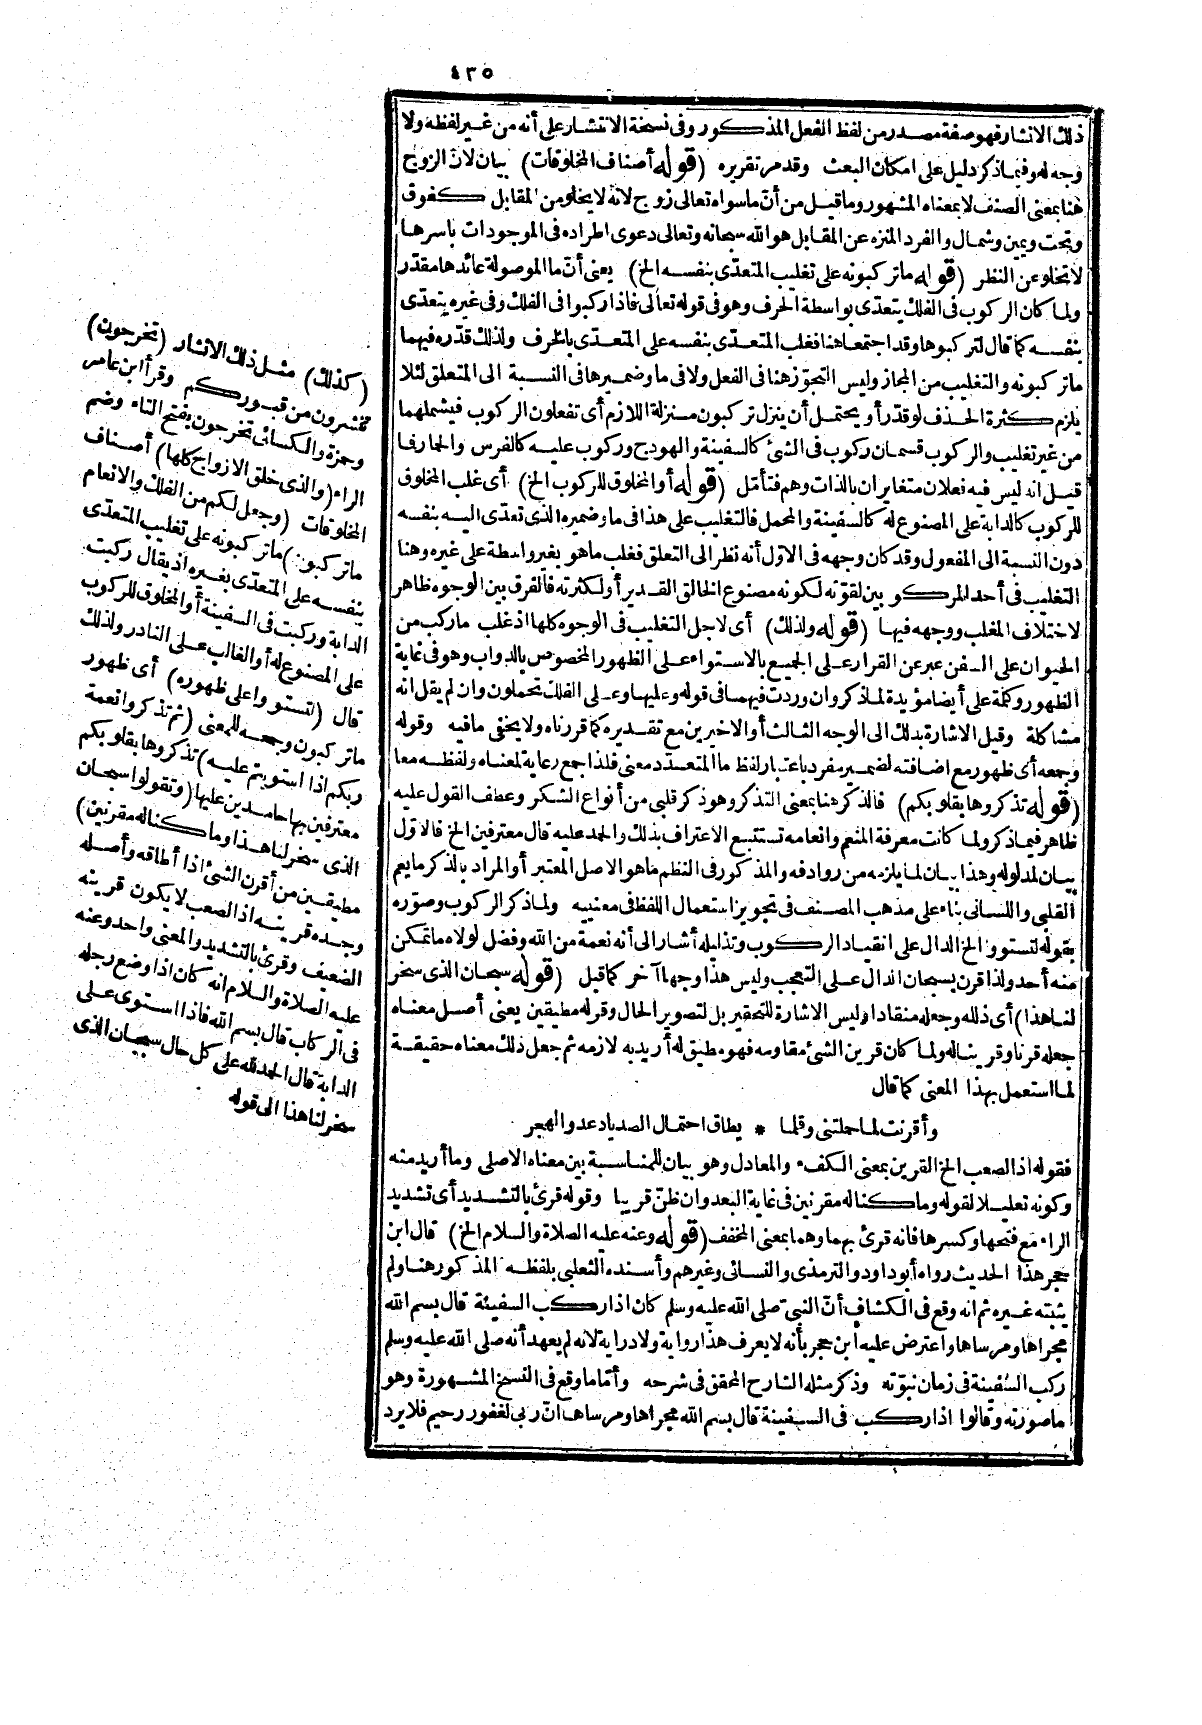 ٤٣٥
ذلك الانشار فهو صفة مصدر من لفظ الفعل المذكور وفى نسخة الانتشار على أنه من غير لفظه ولا
وجه له وفيما ذكر دليل على امكان البعث وقد مر تقريره (قوله أصناف المخلوقات) بيان لان الزوج
هنا بمعنى الصنف لا بمعناه المشهور وما قيل من أنّ ما سواه تعالى زوج لانه لا يخلو من المقابل كفوق
وتحت ويمين وشمال والفرد المنزه عن المقابل هو الله سبحانه وتعالى دعوى اطراده فى الموجودات باسرها
لا تخلو عن النظر (قوله ما تركبونه على تغليب المتعدّى بنفسه الخ) يعنى أنّ ما الموصولة عائدها مقدّر
ولما كان الركوب فى الفلك يتعدّى بواسطة الحرف وهو فى قوله تعالى فاذا ركبوا فى الفلك وفى غيره يتعدّى
بنفسه كما قال لتركبوها وقد اجتمعا هنا فغلب المتعدّى بنفسه على المتعدّى بالحرف ولذلك قدّره فيهما
ما تركبونه والتغليب من المجاز وليس التجوّز هنا فى الفعل ولا فى ما وضميرها فى النسبة الى المتعلق لئلا
يلزم كثرة الحذف لو قدّر أو يحتمل أن ينزل تركبون منزلة اللازم أى تفعلون الركوب فيشملهما
من غير تغليب والركوب قسمان ركوب فى الشئ كالسفينة والهودج وركوب عليه كالفرس والحمار فما
قيل انه ليس فيه فعلان متغايران بالذات وهم فتأمّل (قوله أو المخلوق للركوب الخ) أى غلب المخلوق
للركوب كالدابة على المصنوع له كالسفينة والمحمل فالتغليب على هذا فى ما وضميره الذى تعدّى اليه بنفسه
دون النسبة الى المفعول وقد كان وجهه فى الاوّل أنه نظر الى التعلق فغلب ما هو بغير واسطة على غيره وهنا
التغليب فى أحد المركوبين لقوّته لكونه مصنوع الخالق القدير أو لكثرته فالفرق بين الوجوه ظاهر
لاختلاف المغلب ووجهه فيها (قوله ولذلك) أى لاجل التغليب فى الوجوه كلها اذ غلب ما ركب من
الحيوان على السفن عبر عن القرار على الجميع بالاستواء على الظهور المخصوص بالدواب وهو فى غاية
الظهور وكلمة على أيضا مؤيدة لما ذكر وان وردت فيهما فى قوله وعليها وعلى الفلك تحملون وان لم يقل انه
مشاكلة وقيل الاشارة بذلك الى الوجه الثالث أو الاخيرين مع تقديره كما قررناه ولا يخفى ما فيه وقوله
وجمعه أى ظهور مع اضافته لضمير مفرد باعتبار لفظ ما المتعدّد معنى فلذا جمع رعاية لمعناه ولفظه معا
(قوله تذكروها بقلوبكم) فالذكر هنا بمعنى التذكر وهو ذكر قلبي من أنواع الشكر وعطف القول عليه
ظاهر فيما ذكر ولما كانت معرفة المنعم وانعامه تستتبع الاعتراف بذلك والحمد عليه قال معترفين الخ فالاوّل
بيان لمدلوله وهذا بيان لما يلزمه من روادفه والمذكور فى النظم ما هو الاصل المعتبر أو المراد بالذكر ما يعم
القلبى واللسانى بناء على مذهب المصنف فى تجويز استعمال اللفظ فى معنييه ولما ذكر الركوب وصوّره
بقوله لتستووا الخ الدال على انقياد الركوب وتذليله أشار الى أنه نعمة من الله وفضل لولاه ما تمكن
منه أحد ولذا قرن بسبحان الدال على التعجب وليس هذا وجها آخر كما قيل (قوله سبحان الذى سخر
لنا هذا) أى ذلله وجعله منقادا وليس الاشارة للتحقير بل لتصوير الحال وقوله مطيقين يعنى أصل معناه
جعله قرنا وقرينا له ولما كان قرين الشئ مقاومه فهو مطيق له أريد به لازمه ثم جعل ذلك معناه حقيقة
لما استعمل بهذا المعنى كما قال
وأقرنت لما حملتنى وقلما * يطاق احتمال الصد يا دعد والهجر
فقوله اذ الصعب الخ القرين بمعنى الكفء والمعادل وهو بيان للمناسبة بين معناه الاصلى وما أريد منه
وكونه تعليلا لقوله وما كنا له مقرنين فى غاية البعد وان ظنّ قريبا وقوله قرئ بالتشديد أى تشديد
الراء مع فتحها وكسرها فانه قرئ بهما وهما بمعنى المخفف (قوله وعنه عليه الصلاة والسلام الخ) قال ابن
حجر هذا الحديث رواه أبو داود والترمذى والنسائى وغيرهم وأسنده الثعلبى بلفظه المذكور هنا ولم
يثبته غيره ثم انه وقع فى الكشاف أنّ النبىّ صلى الله عليه وسلم كان اذا ركب السفينة قال بسم الله
مجراها ومرساها واعترض عليه ابن حجر بأنه لا يعرف هذا رواية ولا دراية لانه لم يعهد أنه صلى الله عليه وسلم
ركب السفينة فى زمان نبوّته وذكر مثله الشارح المحقق فى شرحه وأمّا ما وقع فى النسخ المشهورة وهو
ما صورته وقالوا اذا ركب فى السفينة قال بسم الله مجراها ومرساها انّ ربى لغفور رحيم فلا يرد
(كذلك) مثل ذلك الانشار (تخرجون)
تنشرون من قبوركم وقرأ ابن عامر
وحمزة والكسائى تخرجون بفتح التاء وضم
الراء (والذى خلق الازواج كلها) أصناف
المخلوقات (وجعل لكم من الفلك والانعام
ما تركبون) ما تركبونه على تغليب المتعدّى
بنفسه على المتعدّى بغيره اذ يقال ركبت
الدابة وركبت فى السفينة أو المخلوق للركوب
على المصنوع له أو الغالب على النادر ولذلك
قال (لتستووا على ظهوره) أى ظهور
ما تركبون وجمعه للمعنى (ثم تذكروا نعمة
ربكم اذا استويتم عليه) تذكروها بقلوبكم
معترفين بها حامدين عليها (وتقولوا سبحان
الذى سخر لنا هذا وما كنا له مقرنين)
مطيقين من أقرن الشئ اذا أطاقه وأصله
وجده قرينه اذ الصعب لا يكون قرينه
الضعيف وقرئ بالتشديد والمعنى واحد وعنه
عليه الصلاة والسلام انه كان اذا وضع رجله
فى الركاب قال بسم الله فاذا استوى على
الدابة قال الحمد لله على كل حال سبحان الذى
سخر لنا هذا الى قوله